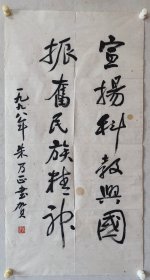 宣揚科教興國
振奮民族精神
一九九八年 朱乃正書賀